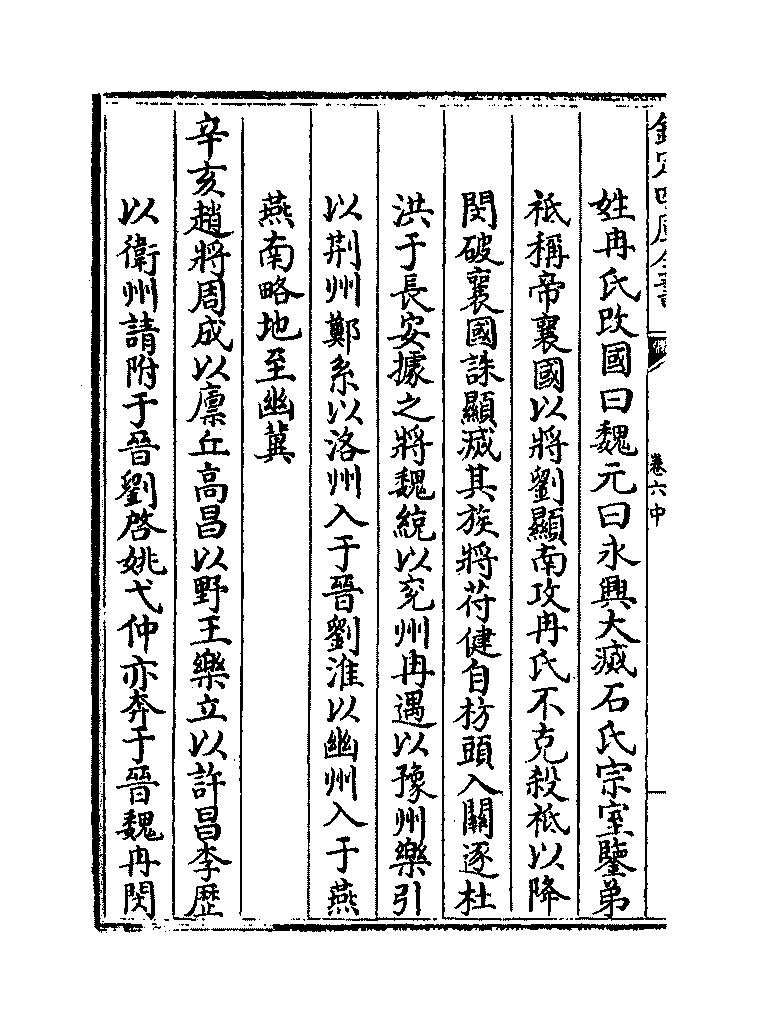 欽定四庫全書
卷六中
姓冉氏改國曰魏元曰永興大滅石氏宗室鑒弟
祗稱帝襄國以將劉顯南攻冉氏不克殺祗以降
閔破襄國誅顯滅其族將苻健自枋頭入關逐杜
洪于長安據之將魏統以兖州冉遇以豫州樂引
以荆州鄭系以洛州入于晉劉淮以幽州入于燕
燕南略地至幽冀
辛亥趙將周成以廪丘高昌以野王樂立以許昌李歴
以衛州請附于晉劉啓姚弋仲亦奔于晉魏冉閔